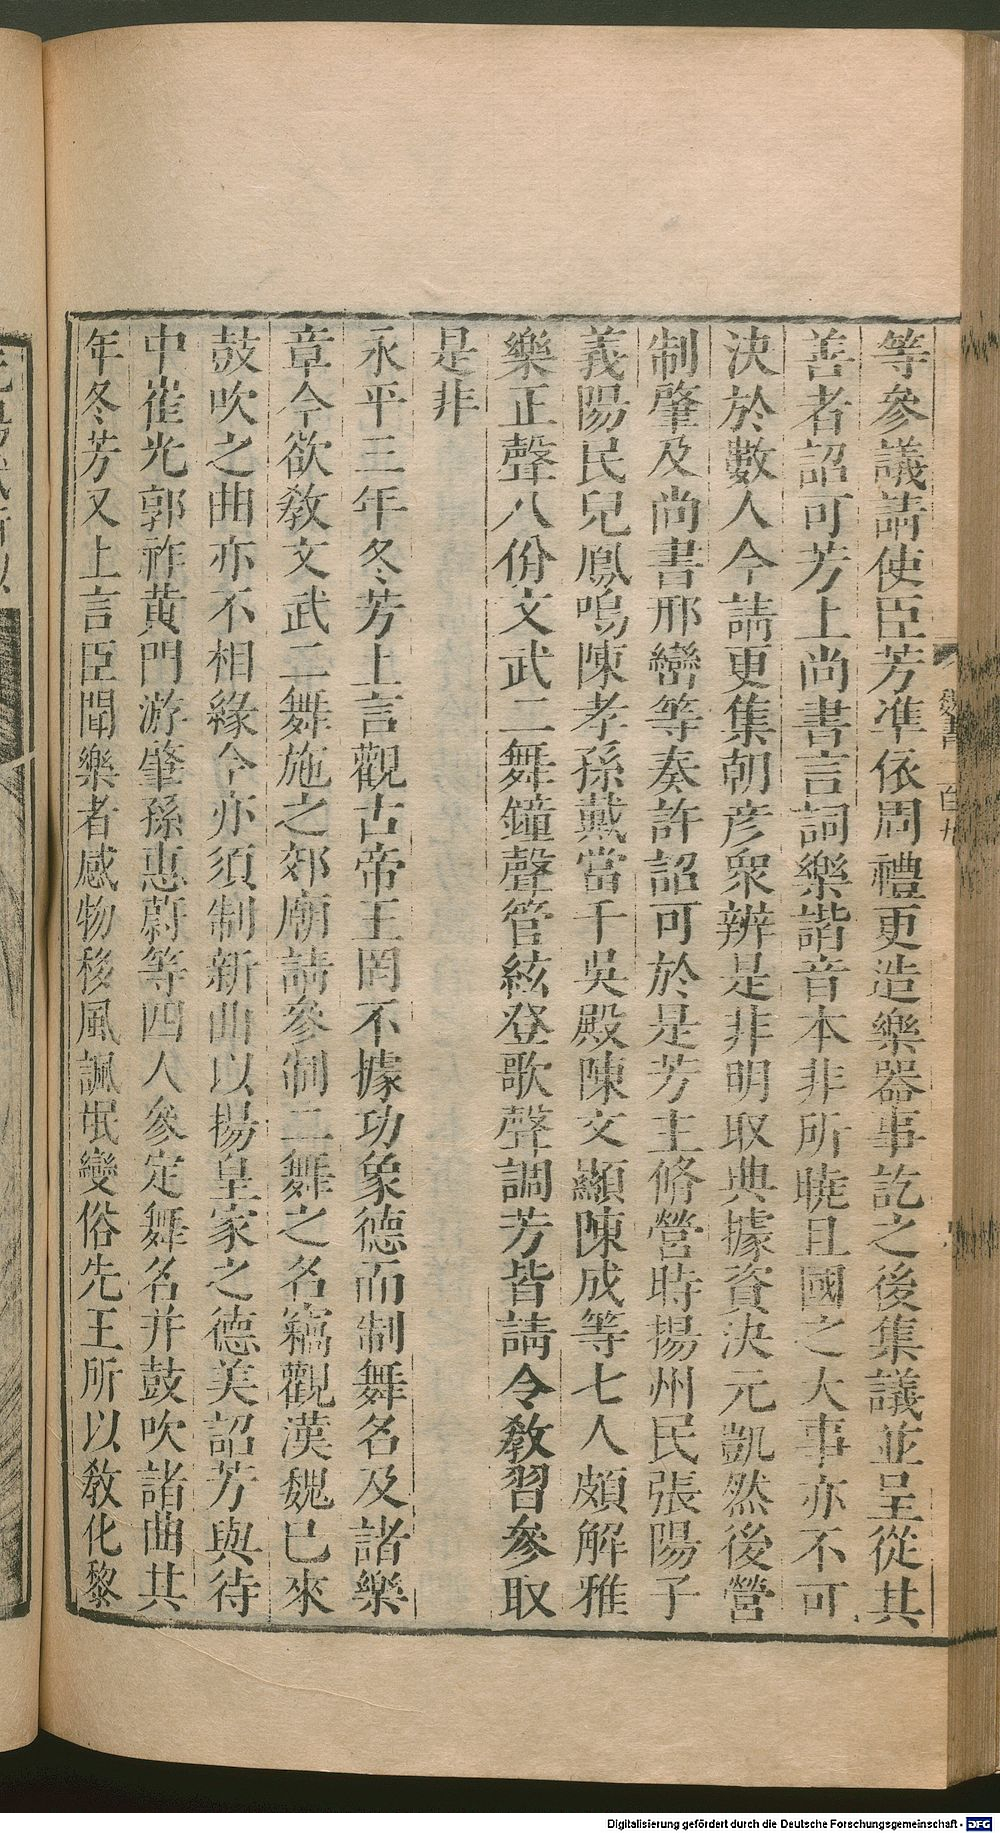 等參議請使臣芳准依周禮更造樂器事訖之後集議並呈從其
善者詔可芳上尚書言詞樂諧音本非所曉且國之大事亦不可
決於數人今請更集朝彦衆辨是非明取典據資決元凱然後營
制肇及尚書邢巒等奏許詔可於是芳主脩營時揚州民張陽子
義陽民兒鳳鳴陳孝孫戴當千吳殿陳文顯陳成等七人頗解雅
樂正聲八佾文武二舞鐘聲管絃登歌聲調芳皆請令敎習參取
是非
永平三年冬芳上言觀古帝王罔不據功象德而制舞名及諸樂
章今欲敎文武二舞施之郊廟請參制二舞之名竊觀漢魏已來
鼓吹之曲亦不相緣今亦須制新曲以揚皇家之德美詔芳與侍
中崔光郭祚黄門游肇孫惠蔚等四人參定舞名并鼓吹諸曲其
年冬芳又上言臣聞樂者感物移風諷氓變俗先王所以敎化黎
Digitalisierung gefördert durch die Deutsche Forschungsgemeinschaft - DFG